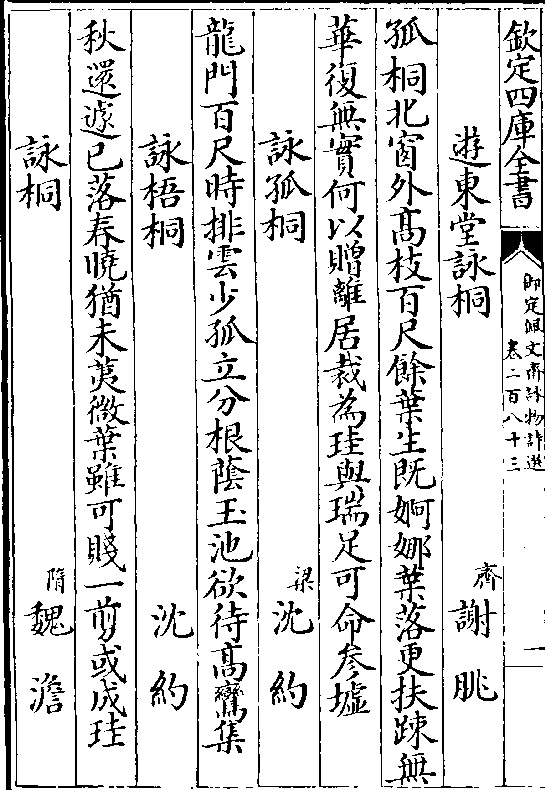 欽定四庫全書
御定佩文齋詠物詩選
卷二百八十三
一
遊東堂詠桐 齊 謝朓
孤桐北窗外高枝百尺餘葉生既婀娜葉落更扶踈無
華復無實何以贈離居裁為珪與瑞足可命參墟
詠孤桐 梁 沈約
龍門百尺時排雲少孤立分根蔭玉池欲待高鸞集
詠梧桐 沈約
秋還遽已落春曉猶未荑微葉雖可賤一剪或成珪
詠桐 隋 魏澹